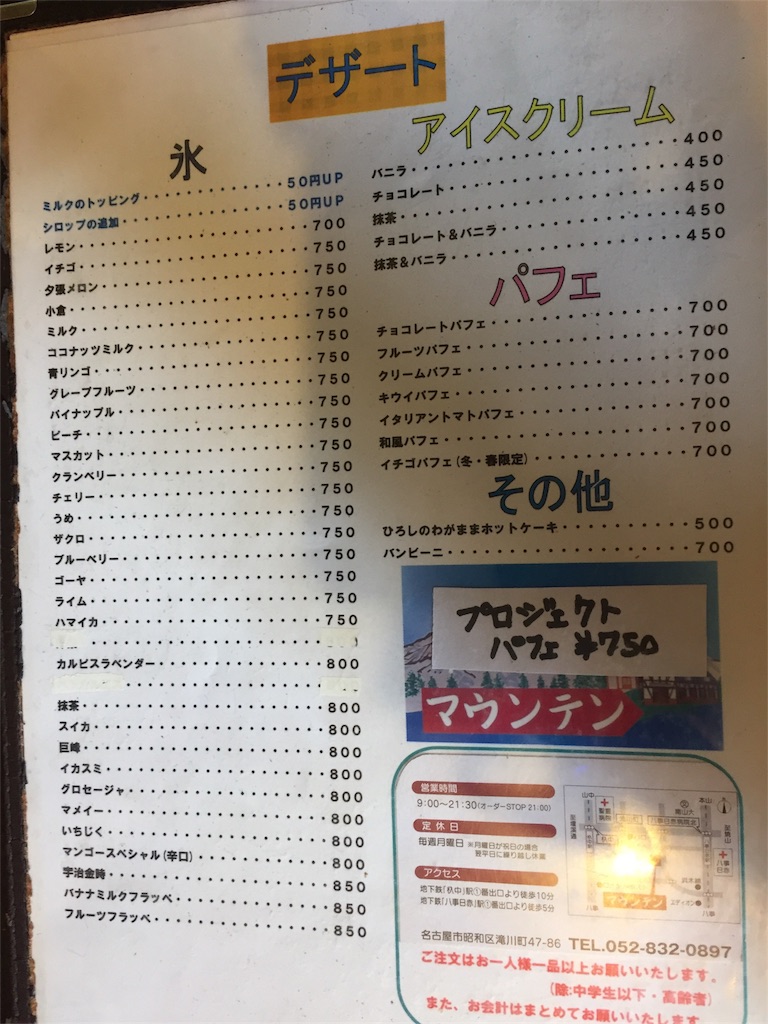 デザート
氷
ミルクのトッピング・・・・・・・・・・・・・50円UP
シロップの追加・・・・・・・・・・・・・・・50円UP
レモン・・・・・・・・・・・・・・・・・・・・700
イチゴ・・・・・・・・・・・・・・・・・・・・750
夕張メロン・・・・・・・・・・・・・・・・・・750
小倉・・・・・・・・・・・・・・・・・・・・・750
ミルク・・・・・・・・・・・・・・・・・・・・750
ココナッツミルク・・・・・・・・・・・・・・・750
青リンゴ・・・・・・・・・・・・・・・・・・・750
グレープフルーツ・・・・・・・・・・・・・・・750
パイナップル・・・・・・・・・・・・・・・・・750
ピーチ・・・・・・・・・・・・・・・・・・・・750
マスカット・・・・・・・・・・・・・・・・・・750
クランベリー・・・・・・・・・・・・・・・・・750
チェリー・・・・・・・・・・・・・・・・・・・750
うめ・・・・・・・・・・・・・・・・・・・・・750
ザクロ・・・・・・・・・・・・・・・・・・・・750
ブルーベリー・・・・・・・・・・・・・・・・・750
ゴーヤ・・・・・・・・・・・・・・・・・・・・750
ライム・・・・・・・・・・・・・・・・・・・・750
ハマイカ・・・・・・・・・・・・・・・・・・・750
カルピスラベンダー・・・・・・・・・・・・・・800
抹茶・・・・・・・・・・・・・・・・・・・・・800
スイカ・・・・・・・・・・・・・・・・・・・・800
巨峰・・・・・・・・・・・・・・・・・・・・・800
イカスミ・・・・・・・・・・・・・・・・・・・800
グロセージャ・・・・・・・・・・・・・・・・・800
マメイー・・・・・・・・・・・・・・・・・・・800
いちじく・・・・・・・・・・・・・・・・・・・800
マンゴースペシャル(辛口)・・・・・・・・・・・800
宇治金時・・・・・・・・・・・・・・・・・・・850
バナナミルクフラッペ・・・・・・・・・・・・・850
フルーツフラッペ・・・・・・・・・・・・・・・850
アイスクリーム
バニラ・・・・・・・・・・・・・・・・・・・・400
チョコレート・・・・・・・・・・・・・・・・・450
抹茶・・・・・・・・・・・・・・・・・・・・・450
チョコレート&バニラ・・・・・・・・・・・・・450
抹茶&バニラ・・・・・・・・・・・・・・・・・450
パフェ
チョコレートパフェ・・・・・・・・・・・・・・700
フルーツパフェ・・・・・・・・・・・・・・・・700
クリームパフェ・・・・・・・・・・・・・・・・700
キウイパフェ・・・・・・・・・・・・・・・・・700
イタリアントマトパフェ・・・・・・・・・・・・700
和風パフェ・・・・・・・・・・・・・・・・・・700
イチゴパフェ(冬・春限定)・・・・・・・・・・・700
その他
ひろしのわがままホットケーキ・・・・・・・・・500
バンビーニ・・・・・・・・・・・・・・・・・・700
プロジェクト
パフェ ¥750
マウンテン
営業時間
9:00〜21:30(オーダーSTOP 21:00)
定休日
毎週月曜日 ※月曜日が祝日の場合
翌平日に繰り越し休業
アクセス
地下鉄「杁中」駅①番出口より徒歩10分
地下鉄「八事日赤」駅①番出口より徒歩5分
山中
本山
南山大
八事日赤
八事
マウンテン
名古屋市昭和区滝川町47-86 TEL.052-832-0897
ご注文はお一人様一品以上お願いいたします。
(除:中学生以下・高齢者)
また、お会計はまとめてお願いいたします。